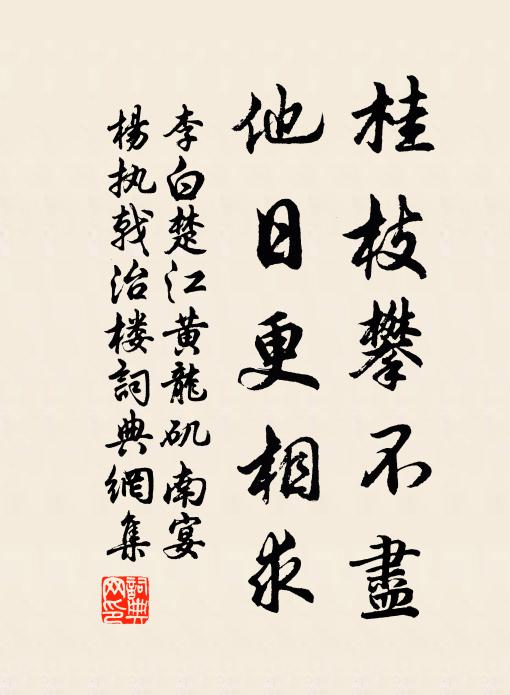 桂枝攀不盡
他日更相求
李白楚江黃龍矶南宴
楊执戟治楼詞典網集
詞典網印